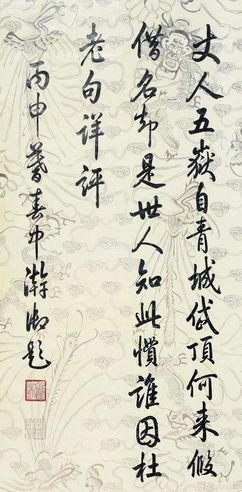 丈人五嶽自青城岱頂何来假
借名却是世人知此慣誰因杜
老句詳評
丙申暮春中瀚御题